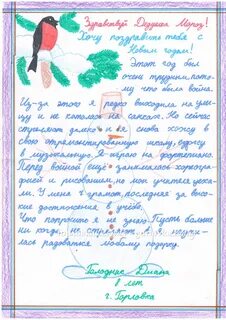 Здравствуй Дедушка Мороз!
Хочу поздравить тебя с
Новым годом!
Этот год был
очень трудным, пото-
му что была война.
Из-за этого я редко выходила на ули-
цу и не каталась на санках. Но сейчас
стреляют далеко и я снова хожу в
свою отремонтированную школу, езжу
в музыкальную. Я играю на фортепиано.
Перед войной ещё занималась хореогра-
фией и рисованием, но мои учителя уеха-
ли. У меня грамот, последняя за высо-
кие достижения в учёбе.
Что попросить я не знаю. Пусть больше
ни когда не стреляют. А я научи-
лась радоваться любому подарку.
Диана
8 лет
г. Горловка